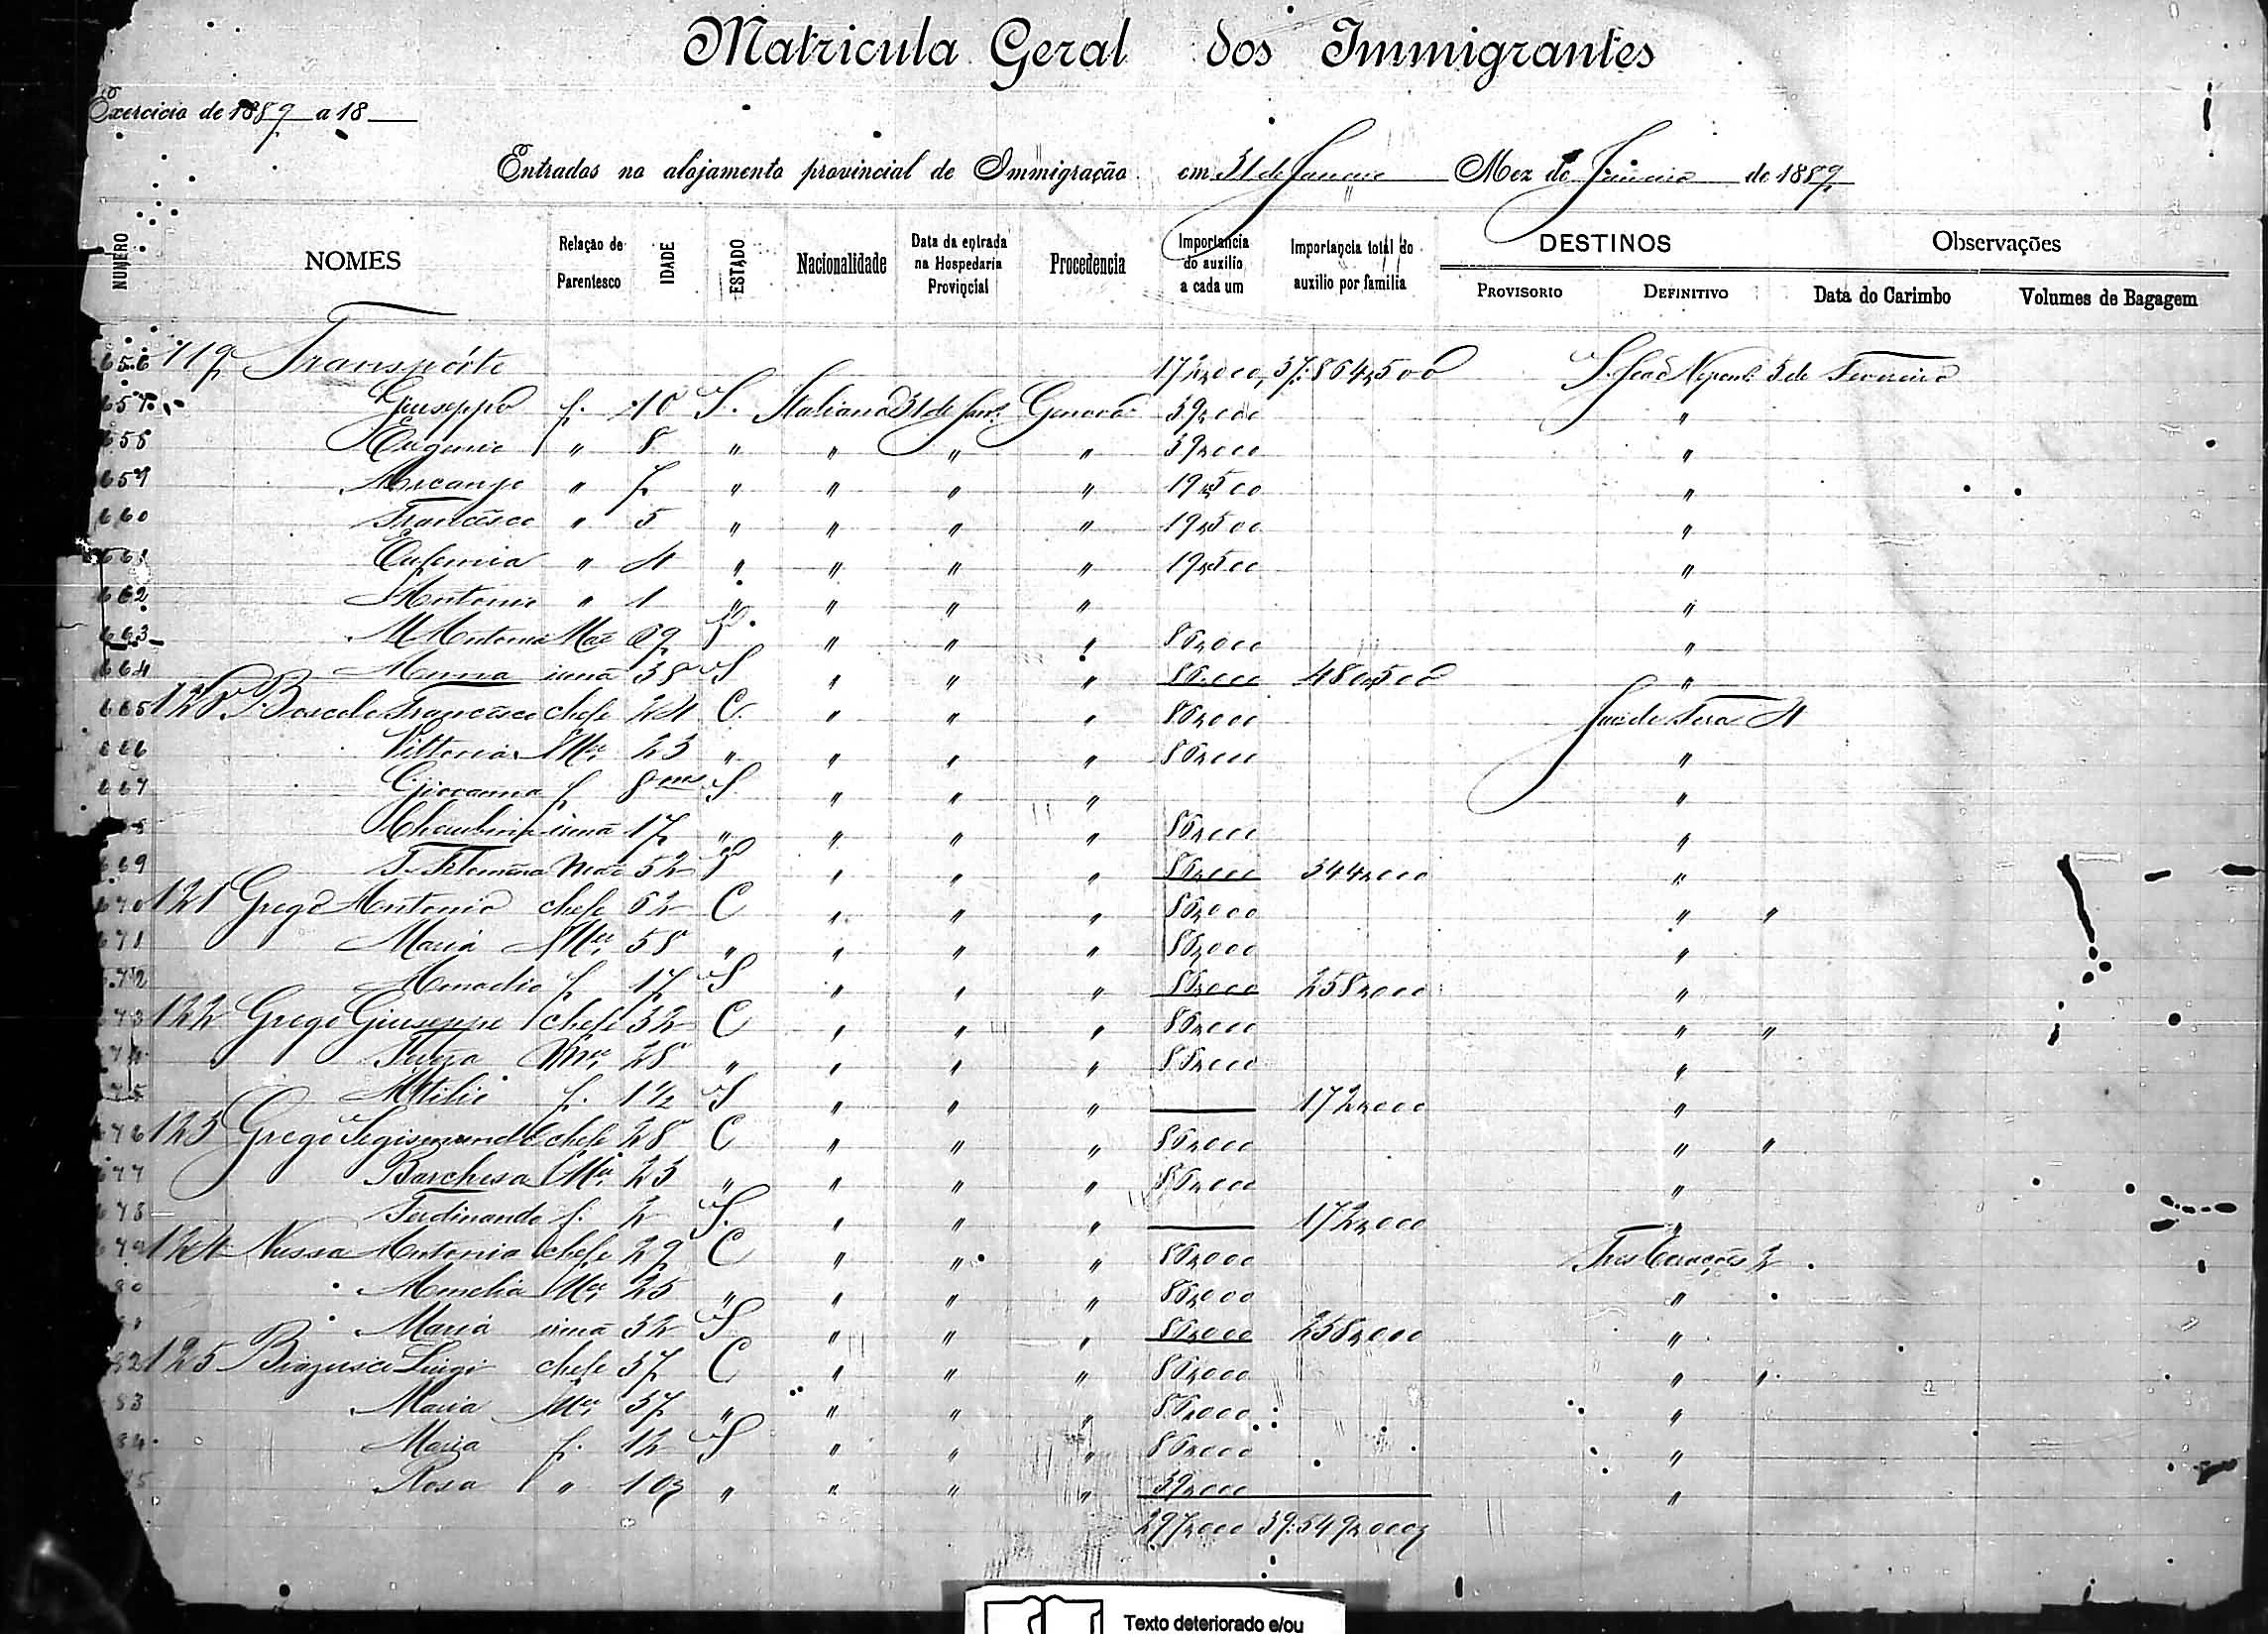 Matricula Geral dos Immigrantes
Exercicio de 1889 a 18
Entrados no alojamento provincial de Immigração em 31 de Janeiro Mez de Janeiro de 1889
NUMERO NOMES Relação de Parentesco IDADE ESTADO Nacionalidade Data da entrada na Hospedaria Provincial Procedencia Importancia do auxilio a cada um Importancia total do auxilio por familia DESTINOS Observações
PROVISORIO DEFINITIVO Data do Carimbo Volumes de Bagagem
656 119 Transpórte 172,000 37:864,500 S. João Nepom. 3 de Fevereiro
657 Giuseppe f. 10 S. Italiana 31 de Jan. Genova 39,000 "
658 Eugenio " 8 " " " " 39,000 "
659 Arcanjo " 7 " " " " 19,500 "
660 Francesco " 5 " " " " 19,500 "
661 Eufemia " 4 " " " " 19,500 "
662 Antonio " 1 " " " " "
663 M Antonia Mae 69 " " " 86,000 "
664 irmã 38 S " " " 86,000 480,500 "
665 120 Francesco chefe 24 C. " " " 86,000 4
666 Vittoria Mer 23 " " " " 86,000 "
667 Giovanna f 8 ms S " " " "
irmã 17 " " " " 86,000 "
669 Mae 52 " " " 86,000 344,000 "
670 121 Grego Antonio chefe 62 C " " " 86,000 " "
671 Maria Mer 58 " " " " 86,000 "
672 Amadio f 17 S " " " 86,000 258,000 "
673 122 Grego Giuseppe chefe 32 C " " " 86,000 " "
74 Mer 28 " " " " 86,000 "
75 Attilio f. 1 1/2 S " " " 172,000 "
676 123 Grego Segismundo chefe 28 C " " " 86,000 " "
677 Barchesa Mer 23 " " " " 86,000 "
678 Ferdinando f. 2 S. " " " 172,000 "
679 124 Nussa Antonio chefe 29 C " " " 86,000 Tres Corações 2
80 Amelia Mer 25 " " " " 86,000 "
Maria irmã 32 S " " " 86,000 258,000 "
82 125 Luigi chefe 37 C " " " 86,000 " "
83 Maria Mer 37 " " " " 86,000 "
84 Maria f. 12 S " " " 86,000 "
85 Rosa " 10 " " " " 39,000 "
297,000 39:549,000
Texto deteriorado e/ou